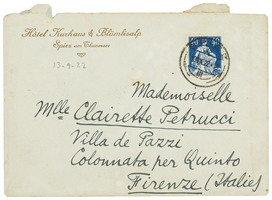 Hôtel Kurhaus & Blümlisalp
Spiez am Thunersee
13-9-27
Mademoiselle
Mlle Clairette Petrucci
Villa de Pazzi
Colonnata per Quinto
Firenze (Italie)